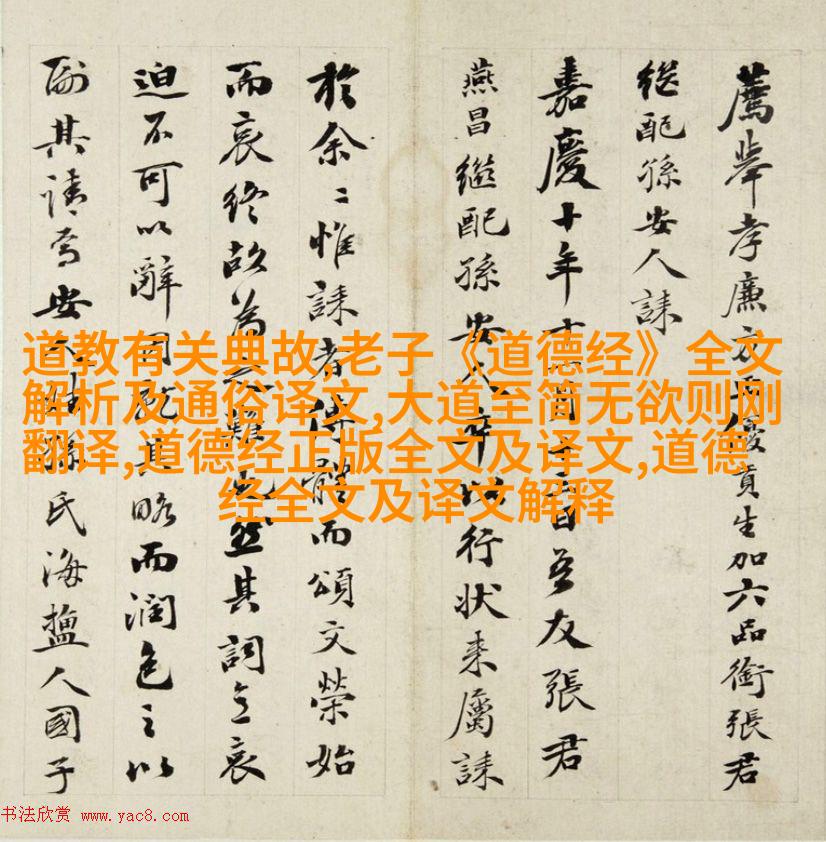 薦舉孝廉方正優貢生加六品銜張君
繼配孫安人誄
嘉慶十年十 日吾友張君
燕昌繼配孫安人卒以行狀來屬誄
於余〻惟誄者傳體而頌文榮始
而哀終故為 難 然其詞 哀
迫不可以辭因就其略而潤色之以
副其請焉安人姓孫氏海鹽人國子
道教有关典故,老子《道德经》全文
解析及通俗译文,大道至简无欲则刚
翻译,道德经正版全文及译文,道德
经全文及译文解释
书法欣赏 www.yac8.com